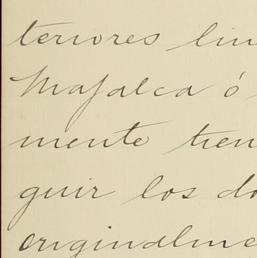 teriores lin
Mafalca ó
mente tien
guir los do
originalme